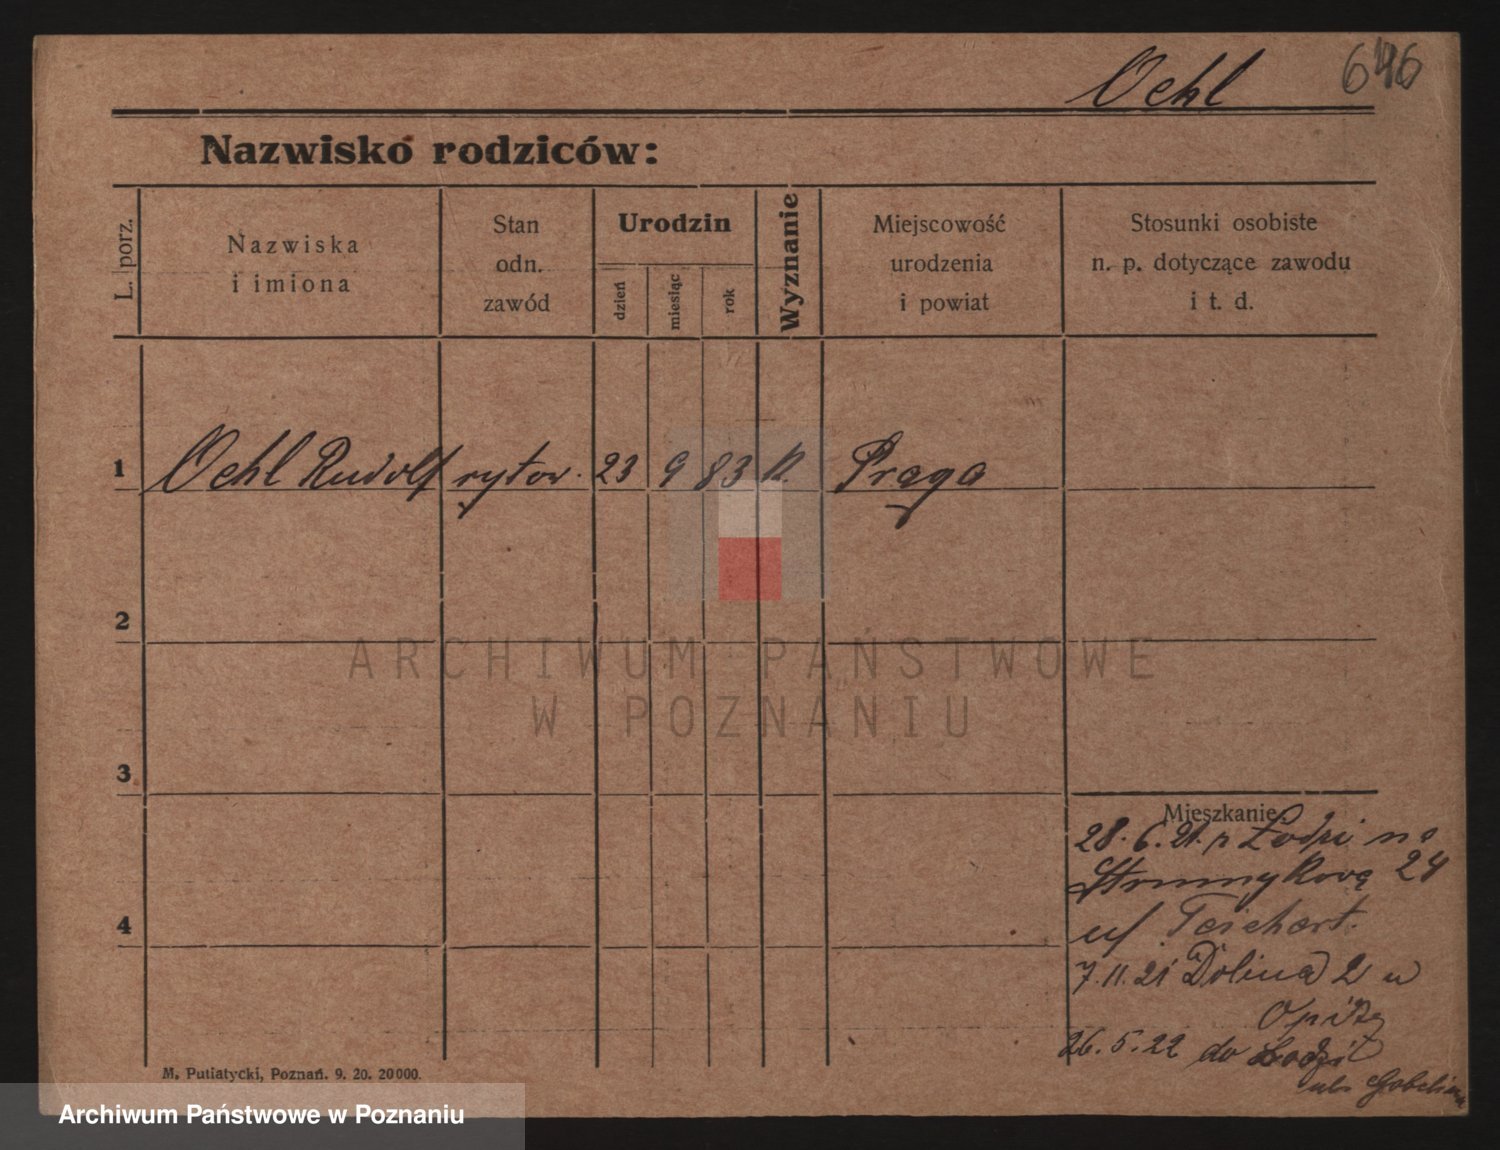 Oehl 646
Nazwisko rodziców:
L. porz.
Nazwiska
i imiona
Stan
odn.
zawód
Urodzin
dzień
miesiąc
rok
Wyznanie
Miejscowość
urodzenia
i powiat
Stosunki osobiste
n. p. dotyczące zawodu
i t. d.
1 Oehl Rudolf rytow. 23 9 83 k. Praga
2
ARCHIWUM PAŃSTWOWE
W POZNANIU
3
Mieszkanie:
28.6.21. z Łodzi na
Strumykową 24
u/ Teichert.
4
7.11.21 Dolina 2 u
Opitz
26.5.22 do Łodzi
M. Putiatycki, Poznań. 9. 20. 20000.
Archiwum Państwowe w Poznaniu